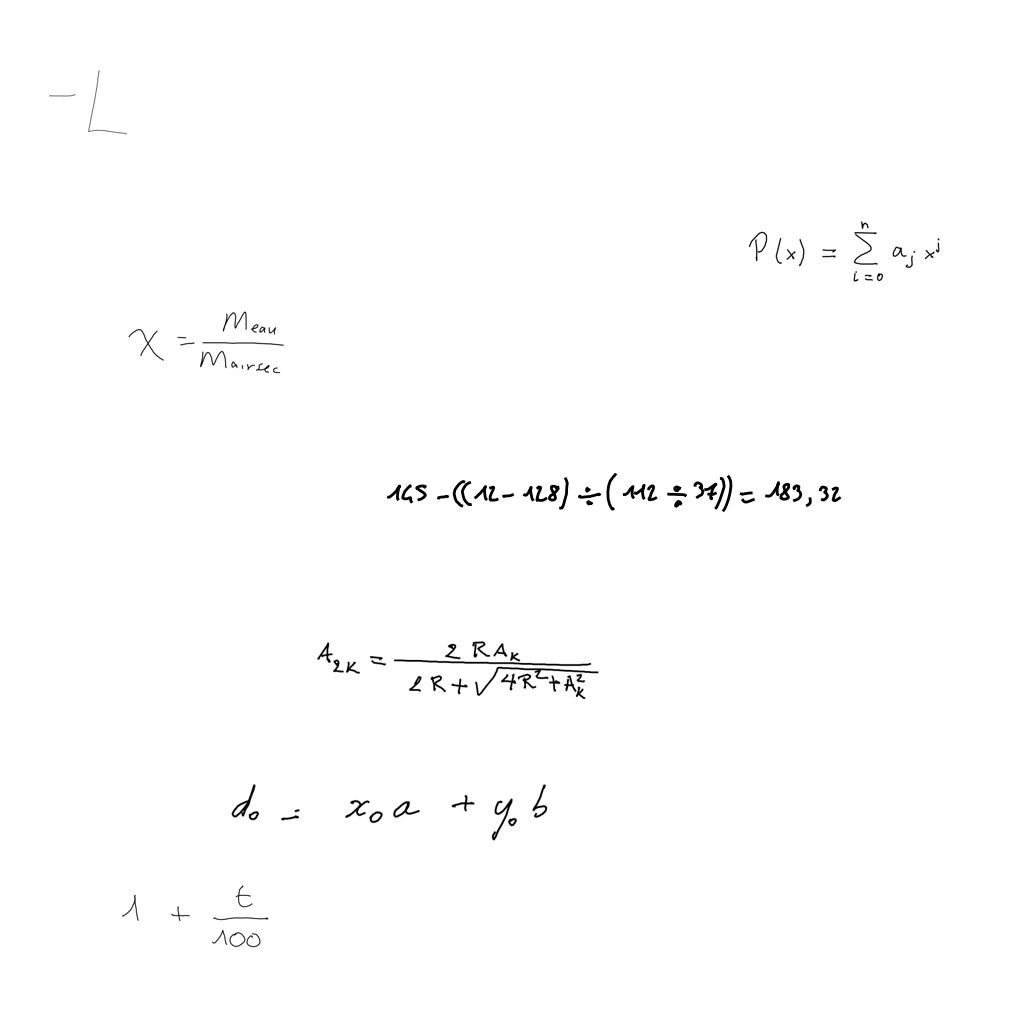 -L
P(x) = \sum_{i=0}^{n} a_j x^j
x = \frac{m_{eau}}{m_{air sec}}
145 - ((12 - 128) ÷ (112 ÷ 37)) = 183,32
A_{2K} = \frac{2 R A_K}{2 R + \sqrt{4 R^2 + A_K^2}}
d_0 = x_0 a + y_0 b
1 + \frac{t}{100}